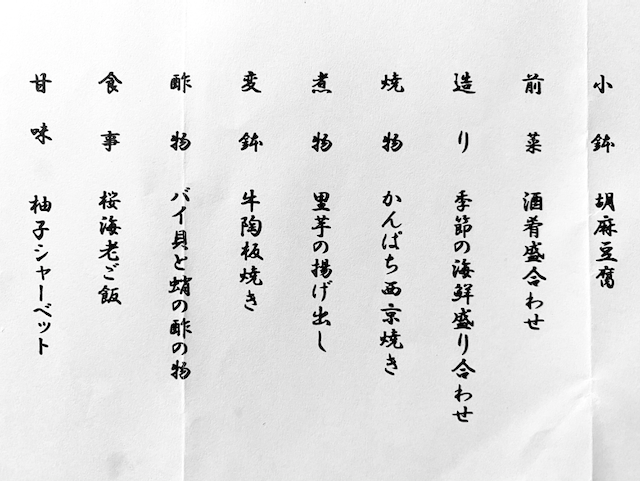 小鉢 胡麻豆腐
前菜 酒肴盛合わせ
造り 季節の海鮮盛り合わせ
焼物 かんぱち西京焼き
煮物 里芋の揚げ出し
変鉢 牛陶板焼き
酢物 バイ貝と蛸の酢の物
食事 桜海老ご飯
甘味 柚子シャーベット